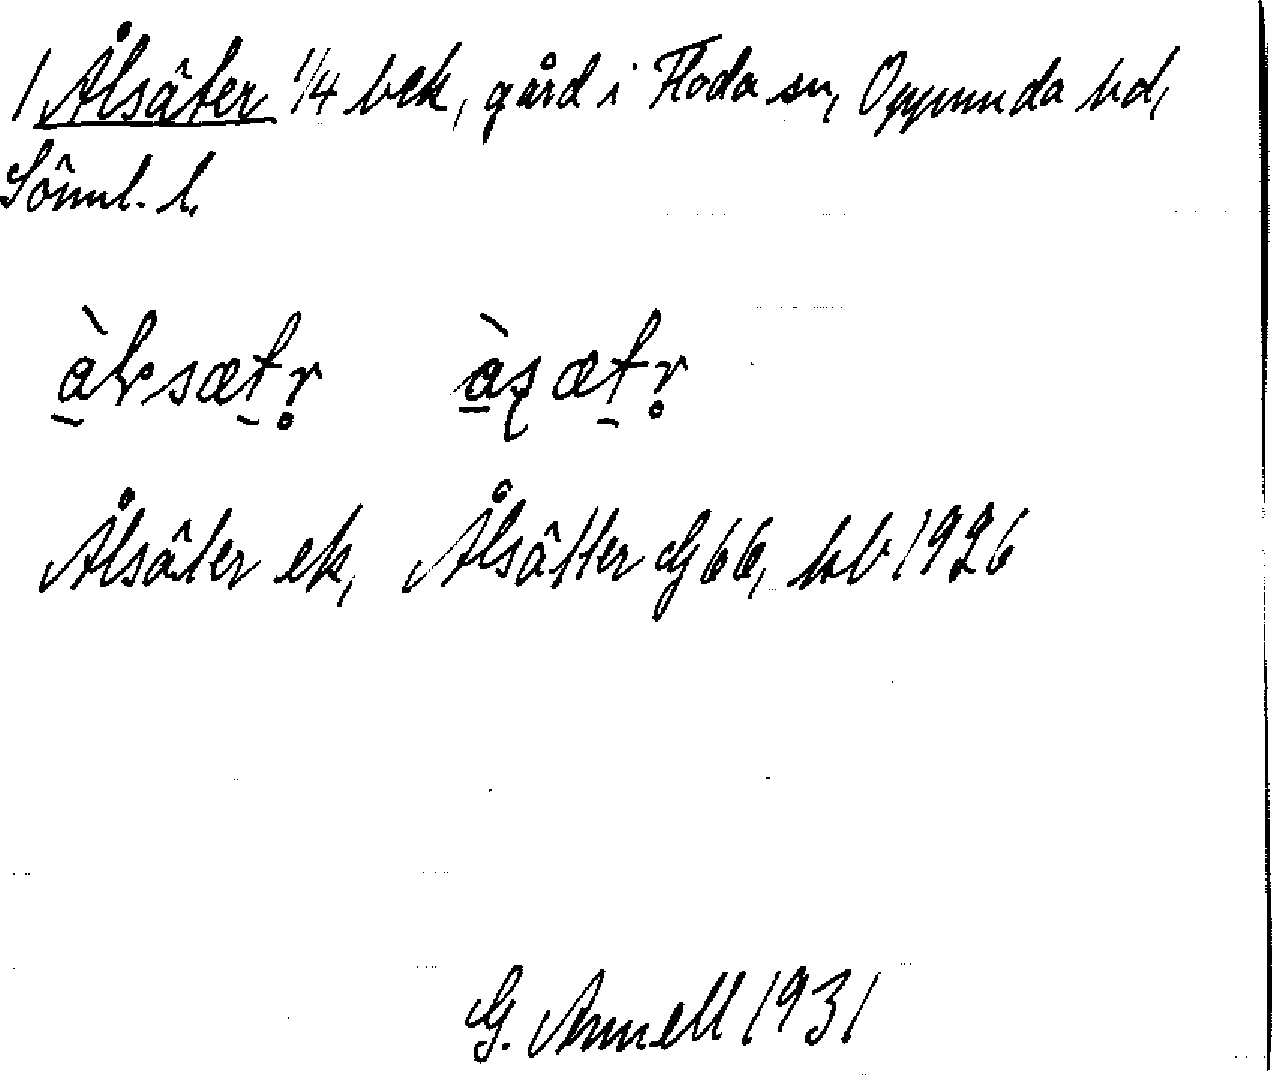 1 Ålsäter 1/4 bek, gård i Floda sn, Oppunda hd,
Söml. l.
àlrsætr̥ àsætr̥
Ålsäter ek, Ålsätter G66, kb 1926
G. Annell 1931